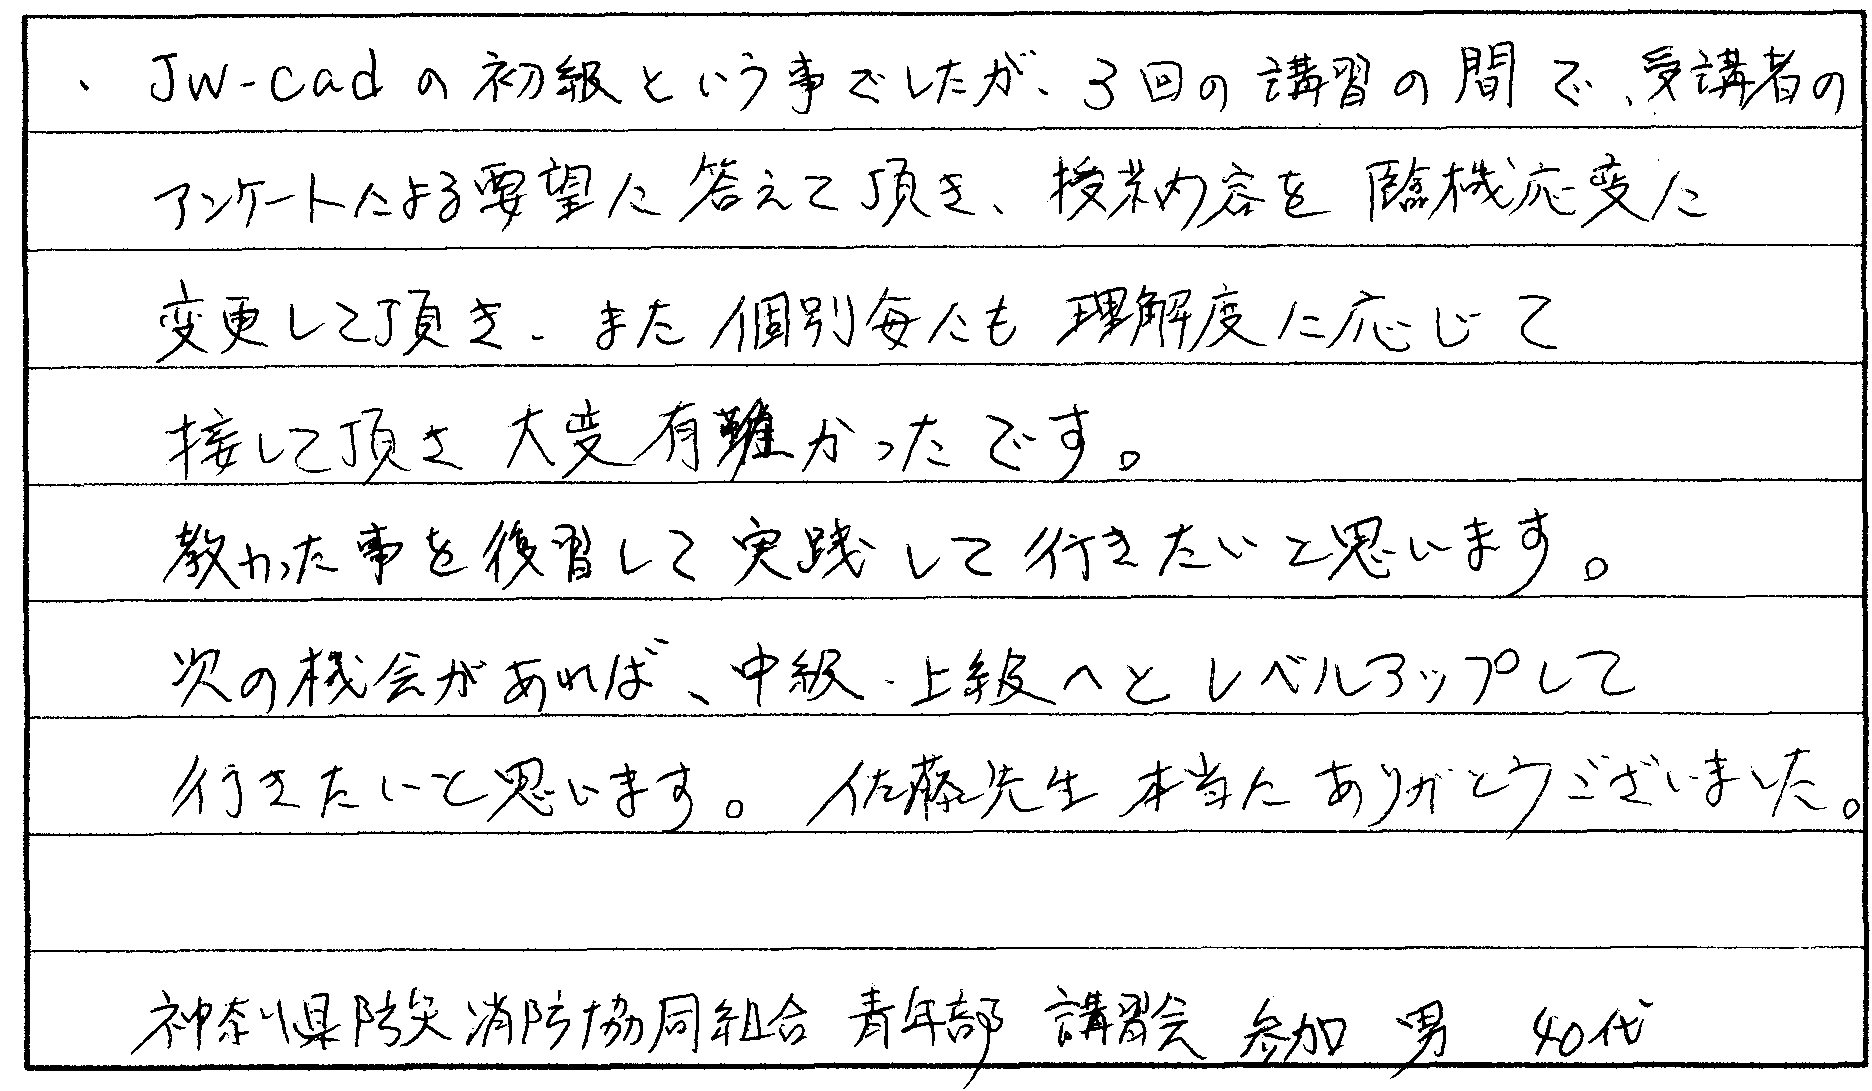 、 Jw-cadの初級という事でしたが、3回の講習の間で、受講者の
アンケートによる要望に答えて頂き、授業内容を臨機応変に
変更して頂き、また個別毎にも理解度に応じて
接して頂き大変有難かったです。
教わった事を復習して実践して行きたいと思います。
次の機会があれば、中級・上級へとレベルアップして
行きたいと思います。 佐藤先生本当にありがとうございました。
神奈川県防災消防協同組合 青年部 講習会 参加 男 40代